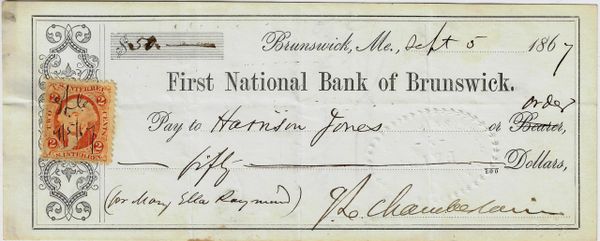 $50.
Brunswick, Me., Sept 5 1867
First National Bank of Brunswick.
order
Pay to Harrison Jones or Bearer,
fifty 100 Dollars,
(for Mary Ella Raymond) J L Chamberlain
U.S. INTER. REV.
TWO CENTS
2 2
2 2
1867